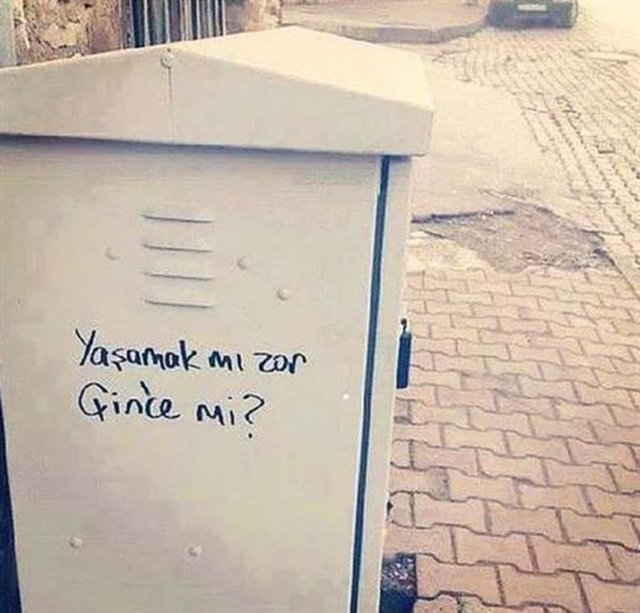 Yaşamak mı zor
Çin'ce mi?